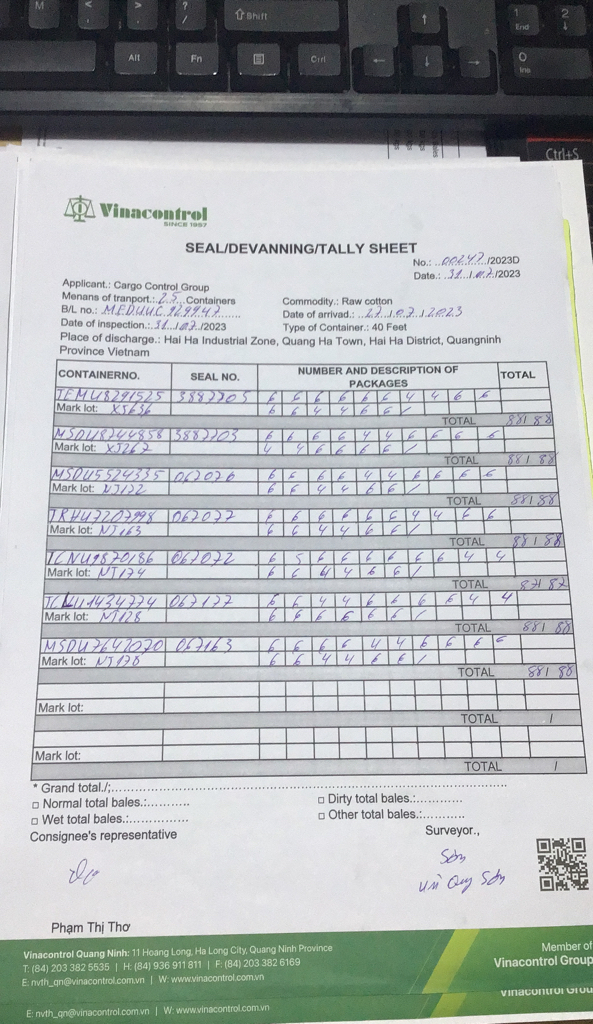 M
<
>
?
/
⇧ Shift
↑
1
End
2
↓
Alt
Fn
Ctrl
←
↓
→
0
Ins
Ctrl+S
Vinacontrol
SINCE 1957
SEAL/DEVANNING/TALLY SHEET
No.: 00247/2023D
Date.: 31/07/2023
Applicant.: Cargo Control Group
Menans of tranport.: 25 Containers
Commodity.: Raw cotton
B/L no.: MEDUUC929947
Date of arrivad.: 27/07/2023
Date of inspection.: 31/07/2023
Type of Container.: 40 Feet
Place of discharge.: Hai Ha Industrial Zone, Quang Ha Town, Hai Ha District, Quangninh
Province Vietnam
CONTAINERNO. SEAL NO. NUMBER AND DESCRIPTION OF PACKAGES TOTAL
TEMU8291525 3887705 6 6 6 6 6 6 4 4 6 6
Mark lot: XJ636 6 6 4 4 6 6 /
TOTAL 88/88
MSDU8244858 3887703 6 6 6 6 4 4 6 6 6 6
Mark lot: XJ267 4 4 6 6 6 6 /
TOTAL 88/88
MSDU5524335 067076 6 6 6 6 4 4 6 6 6 6
Mark lot: NJ122 6 6 4 4 6 6 /
TOTAL 88/88
TRHU7207998 067077 6 6 6 6 6 6 4 4 6 6
Mark lot: NJ163 6 6 4 4 6 6 /
TOTAL 88/88
TCNU9870186 067072 6 5 6 6 6 6 6 6 4 4
Mark lot: NJ174 6 6 4 4 6 6 /
TOTAL 87/87
067177 6 6 4 4 6 6 6 6 4 4
Mark lot: NJ128 6 6 6 6 6 6 /
TOTAL 88/88
MSDU7642070 067163 6 6 6 6 4 4 6 6 6 6
Mark lot: NJ178 6 6 4 4 6 6 /
TOTAL 88/88
Mark lot:
TOTAL /
Mark lot:
TOTAL /
* Grand total./;
□ Normal total bales.:
□ Dirty total bales.:
□ Wet total bales.:
□ Other total bales.:
Consignee's representative
Surveyor.,
Sơn
Quý Sơn
Phạm Thị Thơ
Vinacontrol Quang Ninh: 11 Hoang Long, Ha Long City, Quang Ninh Province
T: (84) 203 382 5535 | H: (84) 936 911 811 | F: (84) 203 382 6169
E: nvth_qn@vinacontrol.com.vn | W: www.vinacontrol.com.vn
Member of
Vinacontrol Group
Vinacontrol Group
E: nvth_qn@vinacontrol.com.vn | W: www.vinacontrol.com.vn